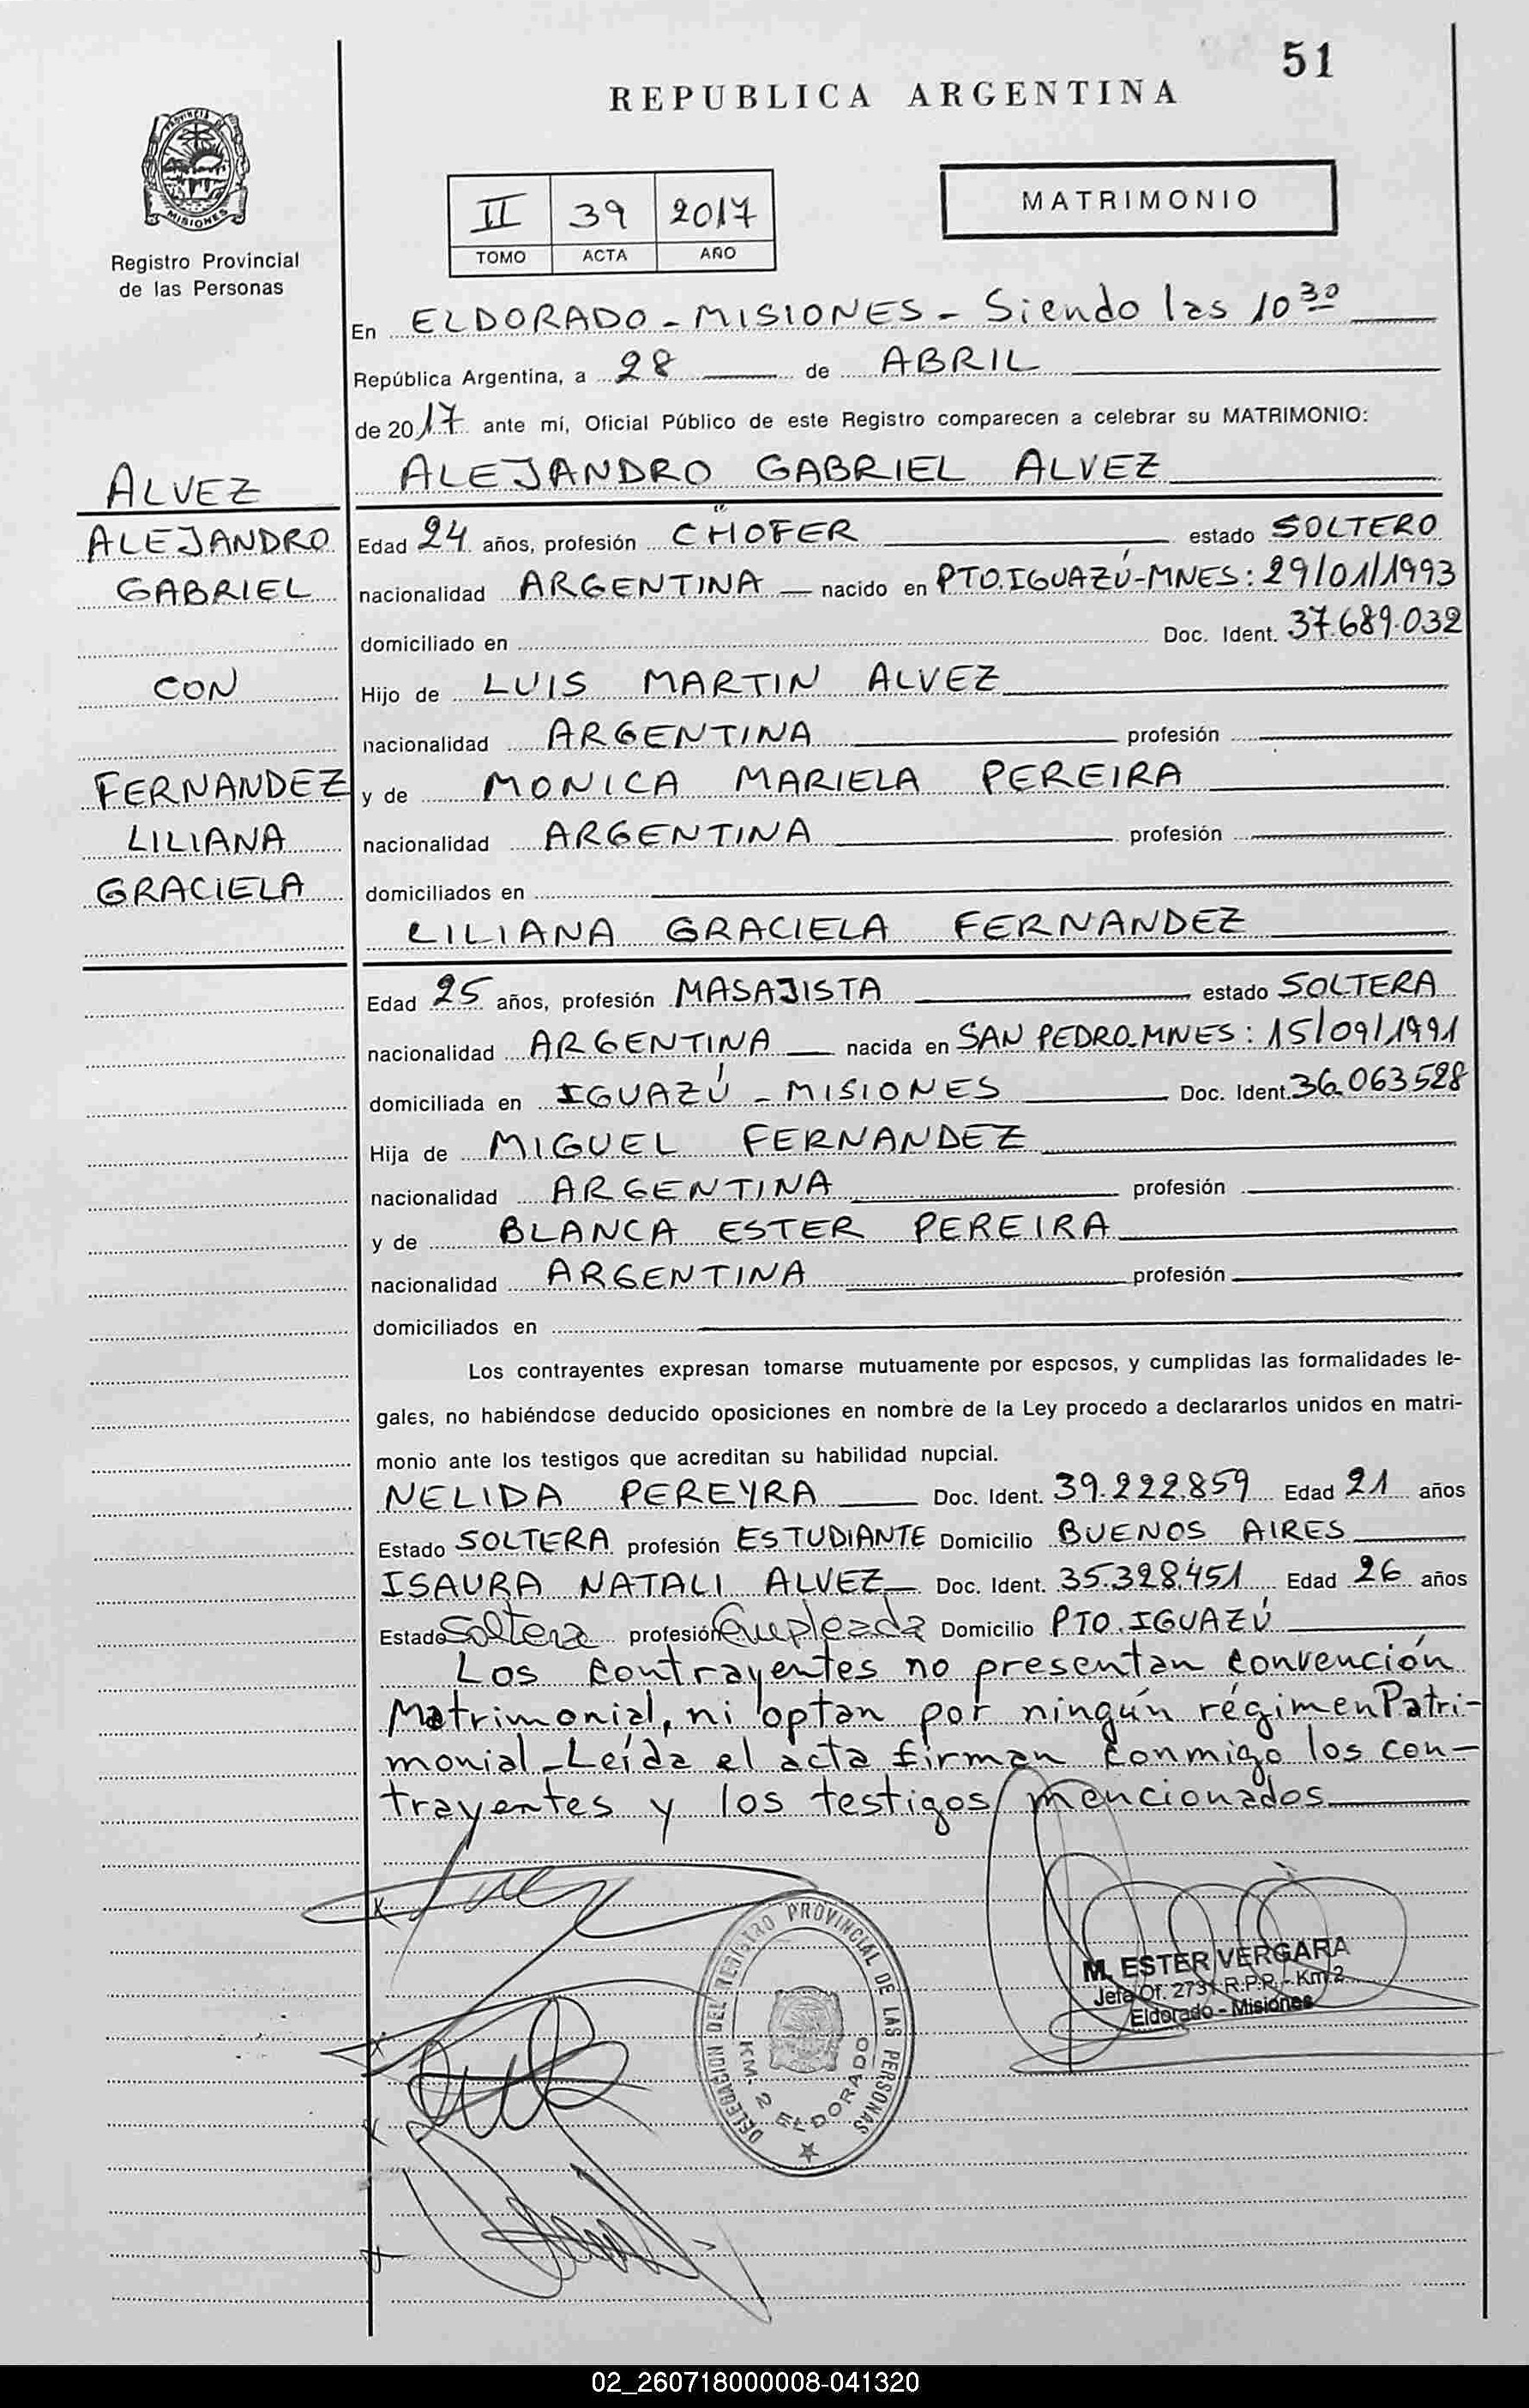 51
REPUBLICA ARGENTINA
PROVINCIA DE
MISIONES
Registro Provincial
de las Personas
II 39 2017
TOMO ACTA AÑO
MATRIMONIO
En ELDORADO - MISIONES - Siendo las 10 30
República Argentina, a 28 de ABRIL
de 2017 ante mí, Oficial Público de este Registro comparecen a celebrar su MATRIMONIO:
ALVEZ
ALEJANDRO
GABRIEL
CON
FERNANDEZ
LILIANA
GRACIELA
ALEJANDRO GABRIEL ALVEZ
Edad 24 años, profesión CHOFER estado SOLTERO
nacionalidad ARGENTINA nacido en PTO. IGUAZÚ-MNES: 29/01/1993
domiciliado en Doc. Ident. 37.689.032
Hijo de LUIS MARTIN ALVEZ
nacionalidad ARGENTINA profesión
y de MONICA MARIELA PEREIRA
nacionalidad ARGENTINA profesión
domiciliados en
LILIANA GRACIELA FERNANDEZ
Edad 25 años, profesión MASAJISTA estado SOLTERA
nacionalidad ARGENTINA nacida en SAN PEDRO-MNES: 15/09/1991
domiciliada en IGUAZÚ - MISIONES Doc. Ident. 36.063528
Hija de MIGUEL FERNANDEZ
nacionalidad ARGENTINA profesión
y de BLANCA ESTER PEREIRA
nacionalidad ARGENTINA profesión
domiciliados en
Los contrayentes expresan tomarse mutuamente por esposos, y cumplidas las formalidades le-
gales, no habiéndose deducido oposiciones en nombre de la Ley procedo a declararlos unidos en matri-
monio ante los testigos que acreditan su habilidad nupcial.
NELIDA PEREYRA Doc. Ident. 39.222.859 Edad 21 años
Estado SOLTERA profesión ESTUDIANTE Domicilio BUENOS AIRES
ISAURA NATALI ALVEZ Doc. Ident. 35.328.451 Edad 26 años
Estado Soltera profesión Empleada Domicilio PTO. IGUAZÚ
Los contrayentes no presentan convención
Matrimonial, ni optan por ningún régimen Patri-
monial - Leída el acta firman conmigo los con-
trayentes y los testigos mencionados
DELEGACION DEL REGISTRO PROVINCIAL DE LAS PERSONAS
KM. 2 ELDORADO
M. ESTER VERGARA
Jefa Of. 2731 R.P.P. - Km 2
Eldorado - Misiones
02_260718000008-041320